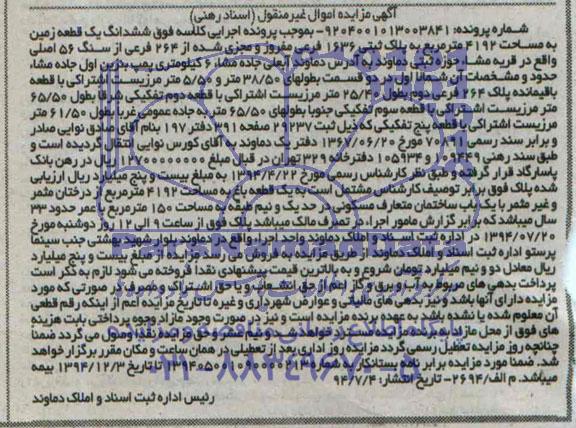 آگهی مزایده اموال غیر منقول (اسناد رهنی)
شماره پرونده: ۹۲۰۴۰۰۱۰۱۳۰۰۳۸۴۱- بموجب پرونده اجرایی کلاسه فوق ششدانگ یک قطعه زمین
به مساحت ۴۱۹۲ مترمربع به پلاک ثبتی ۱۶۳۶ فرعی مفروز و مجزی شده از ۲۶۴ فرعی از سنگ ۵۶ اصلی
واقع در قریه مشاء حوزه ثبتی دماوند به آدرس دماوند آبعلی جاده مشاء ۶ کیلومتری پمپ بنزین اول جاده مشاء
حدود و مشخصات آن شمالا اول در دو قسمت بطولهای ۳۸/۵۰ متر و ۵/۵۰ متر مرزیست اشتراکی با قطعه
باقیمانده پلاک ۲۶۴ فرعی دوم بطول ۲۵/۴۰ متر مرزیست اشتراکی با قطعه دوم تفکیکی شرقا بطول ۶۵/۵۰
متر مرزیست اشتراکی با قطعه سوم تفکیکی جنوبا بطولهای ۶۵/۵۰ متر به جاده عمومی غربا بطول ۶۱/۵۰ متر
مرزیست اشتراکی با قطعه پنج تفکیکی که ذیل ثبت ۲۹۲۳۷ صفحه ۴۹۱ دفتر ۱۹۷ بنام آقای صادق نوایی صادر
و برابر سند رسمی ۷۰۴۹۱ مورخ ۱۳۸۶/۰۶/۲۰ دفتر یک دماوند به آقای کورس نوایی انتقال گردیده است و
طبق سند رهنی ۱۰۹۴۴۹ و ۱۰۵۹۳۴ دفترخانه ۳۲۹ تهران در قبال مبلغ ریال در رهن بانک
پاسارگاد قرار گرفته و طبق نظر کارشناس رسمی مورخ ۱۳۹۴/۴/۲۲ به مبلغ بیست و پنج میلیارد ریال ارزیابی
شده پلاک فوق برابر توصیف کارشناس مشتمل است به یک قطعه باغ به مساحت ۴۱۹۲ مترمربع از درختان مثمر
و غیر مثمر با یک باب ساختمان متعارف مسکونی در حد یک و نیم طبقه به مساحت ۱۵۰ مترمربع با عمر حدود ۳۳
سال میباشد که برابر گزارش مامور اجراء در تصرف مالک میباشد پلاک فوق از ساعت ۹ الی ۱۲ روز دوشنبه مورخ
۱۳۹۴/۰۷/۲۰ در اداره ثبت اسناد و املاک دماوند واحد اجرا واقع در دماوند بلوار شهید بهشتی جنب سینما
پرستو اداره ثبت اسناد و املاک دماوند از طریق مزایده به فروش می رسد مزایده از مبلغ بیست و پنج میلیارد
ریال معادل دو و نیم میلیارد تومان شروع و به بالاترین قیمت پیشنهادی نقدا فروخته می شود لازم به ذکر است
پرداخت بدهی های مربوط به آب و برق و گاز اعم از حق انشعاب و یا حق اشتراک و مصرف در صورتی که مورد
مزایده دارای آنها باشد و نیز بدهی های مالیاتی و عوارض شهرداری و غیره تا تاریخ مزایده اعم از اینکه رقم قطعی
آن معلوم شده یا نشده باشد به عهده برنده مزایده است و نیز در صورت وجود مازاد وجوه پرداختی بابت هزینه
های فوق از محل مازاد به برنده مزایده مسترد خواهد شد و نیم عشر و حق مزایده نقدا وصول می گردد ضمنا
چنانچه روز مزایده تعطیل رسمی گردد مزایده روز اداری بعد از تعطیلی در همان ساعت و مکان مقرر برگزار خواهد
شد. ضمنا مورد مزایده برابر نامه بستانکار به شماره تا تاریخ ۱۳۹۴/۱۲/۳ بیمه
میباشد. م الف/۲۶۹۴- تاریخ انتشار: ۹۴/۷/۴
رئیس اداره ثبت اسناد و املاک دماوند
پایگاه اطلاع رسانی مناقصه و مزایده
۰۲۱-۸۸۳۴۹۶۷۰